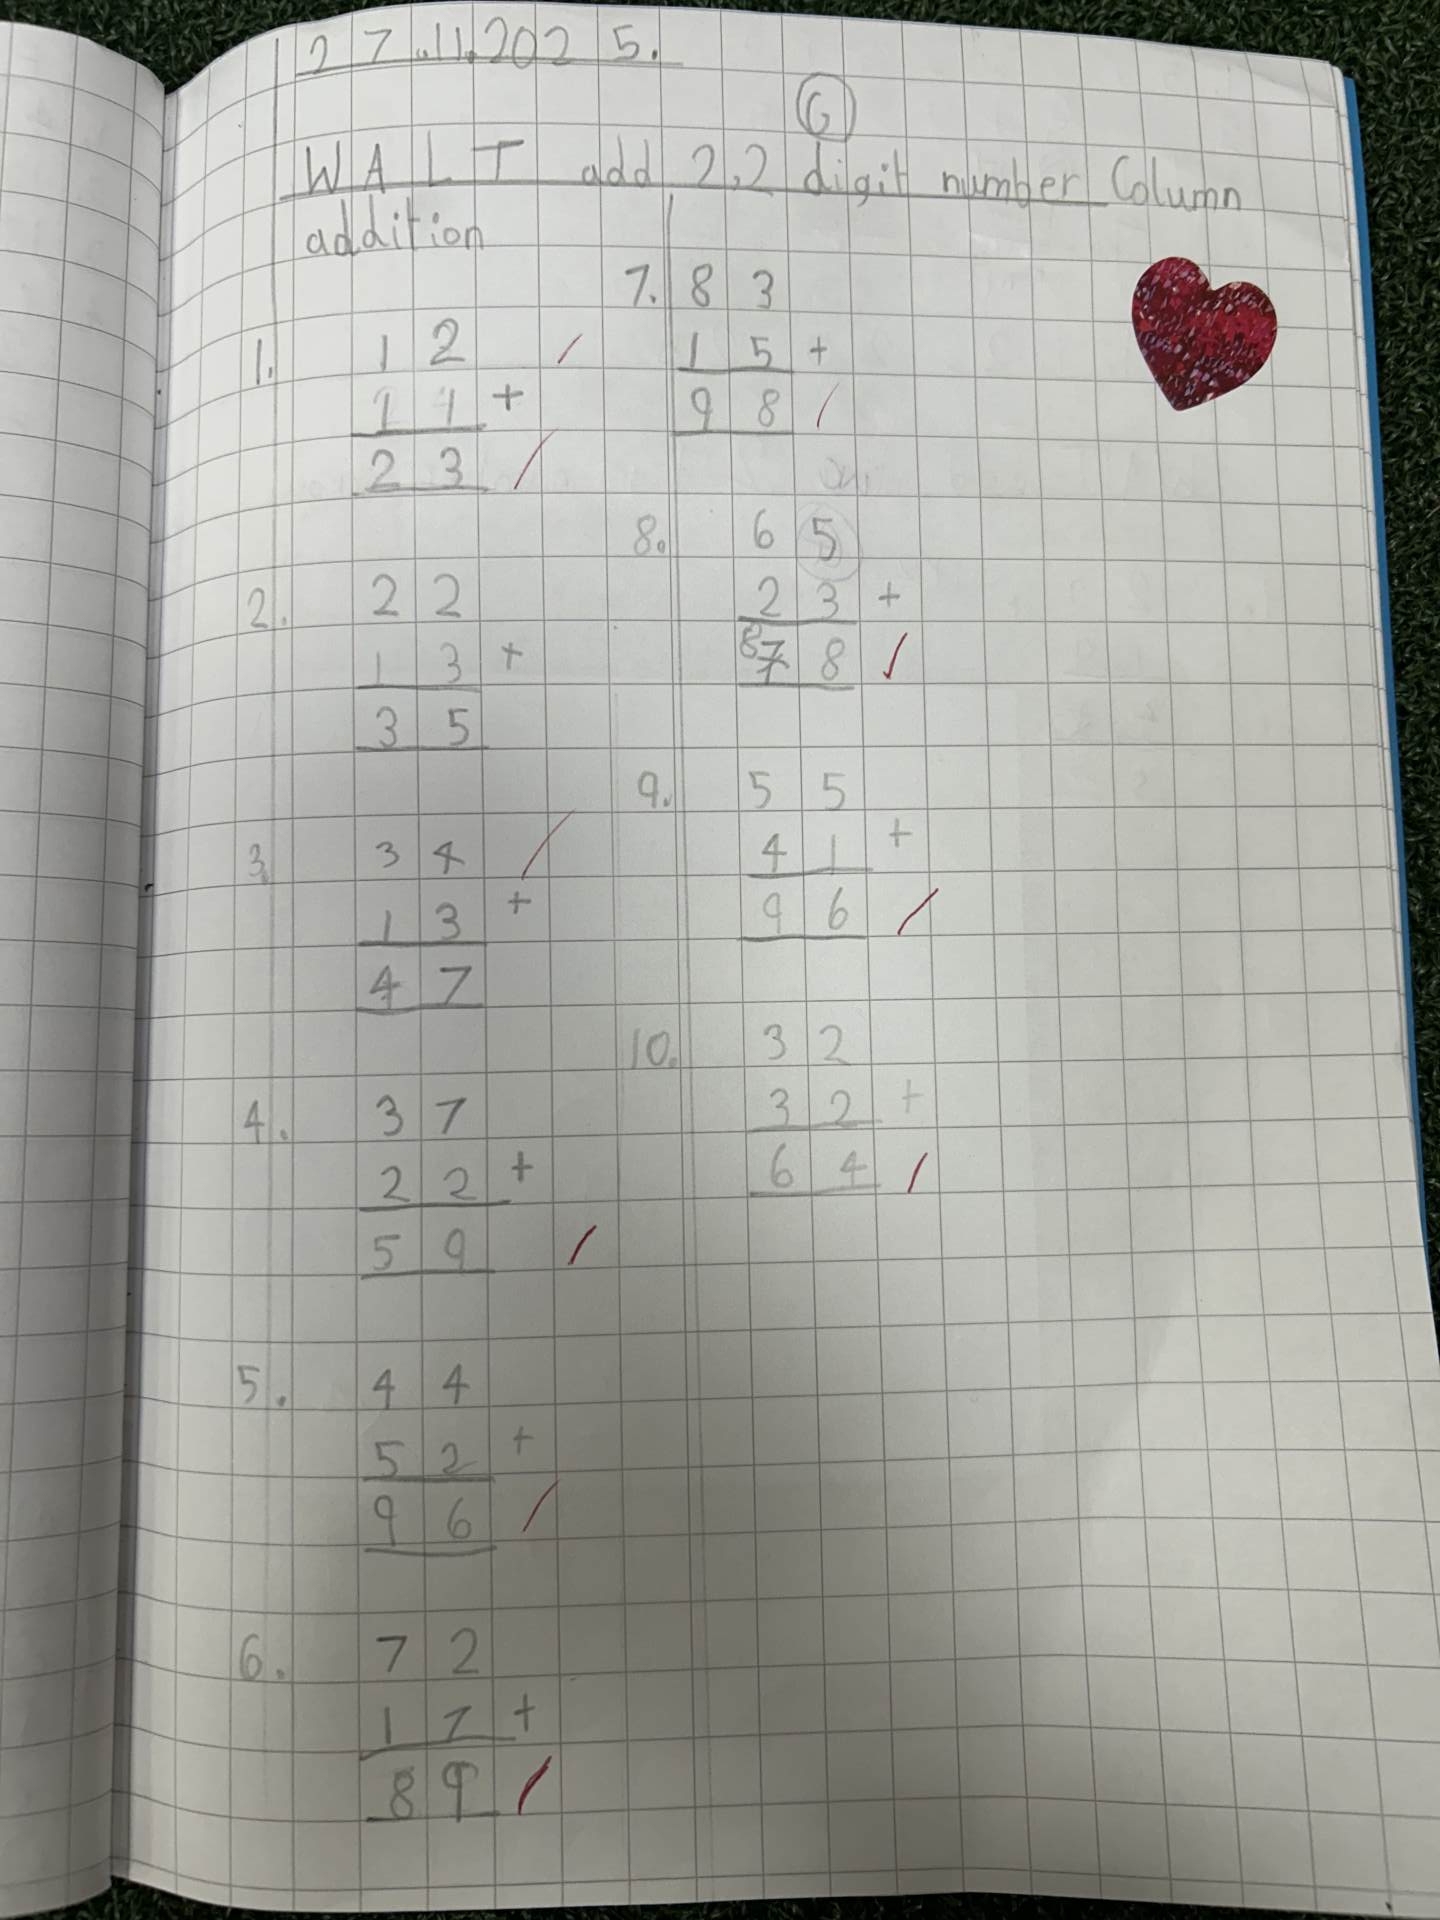 27.11.2025.
G
WALT add 2,2 digit number Column
addition
1. 12
11 +
23
2. 22
13 +
35
3. 34
13 +
47
4. 37
22 +
59
5. 44
52 +
96
6. 72
17 +
89
7. 83
15 +
98
8. 65
23 +
878
9. 55
41 +
96
10. 32
32 +
64